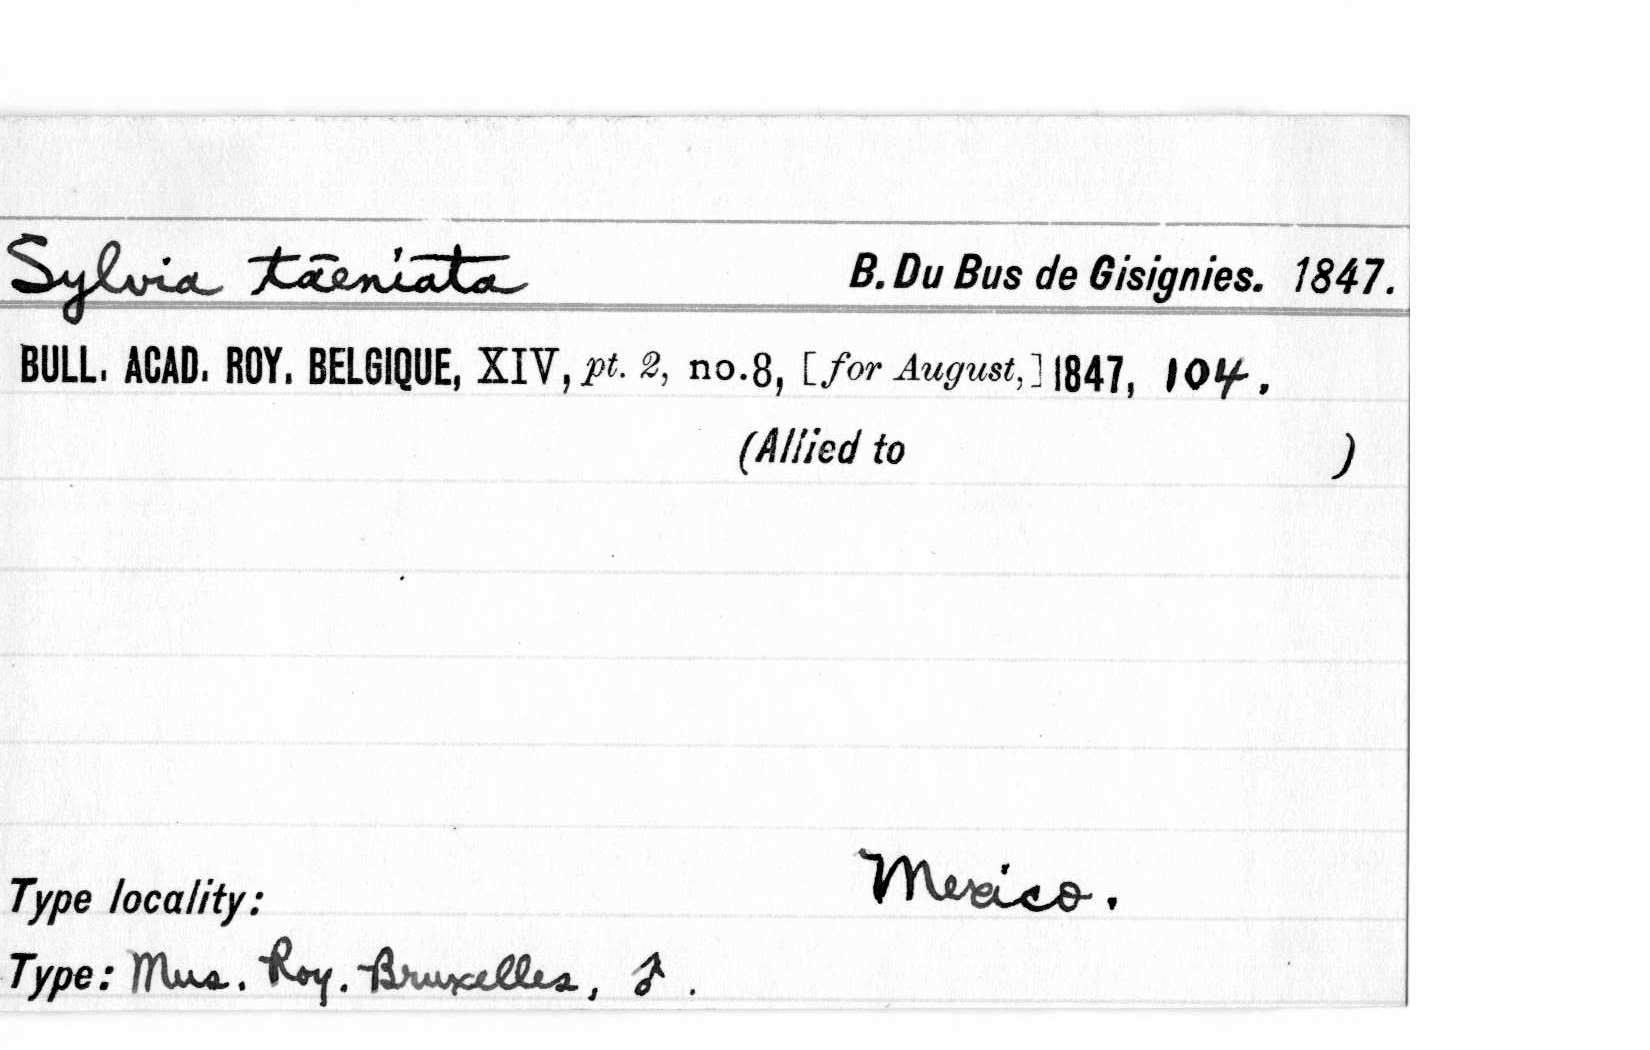 Sylvia taeniata B. Du Bus de Gisignies. 1847.
BULL. ACAD. ROY. BELGIQUE, XIV, pt. 2, no.8, [for August,] 1847, 104.
(Allied to )
Type locality: Mexico.
Type: Mus. Roy. Bruxelles, ♂.